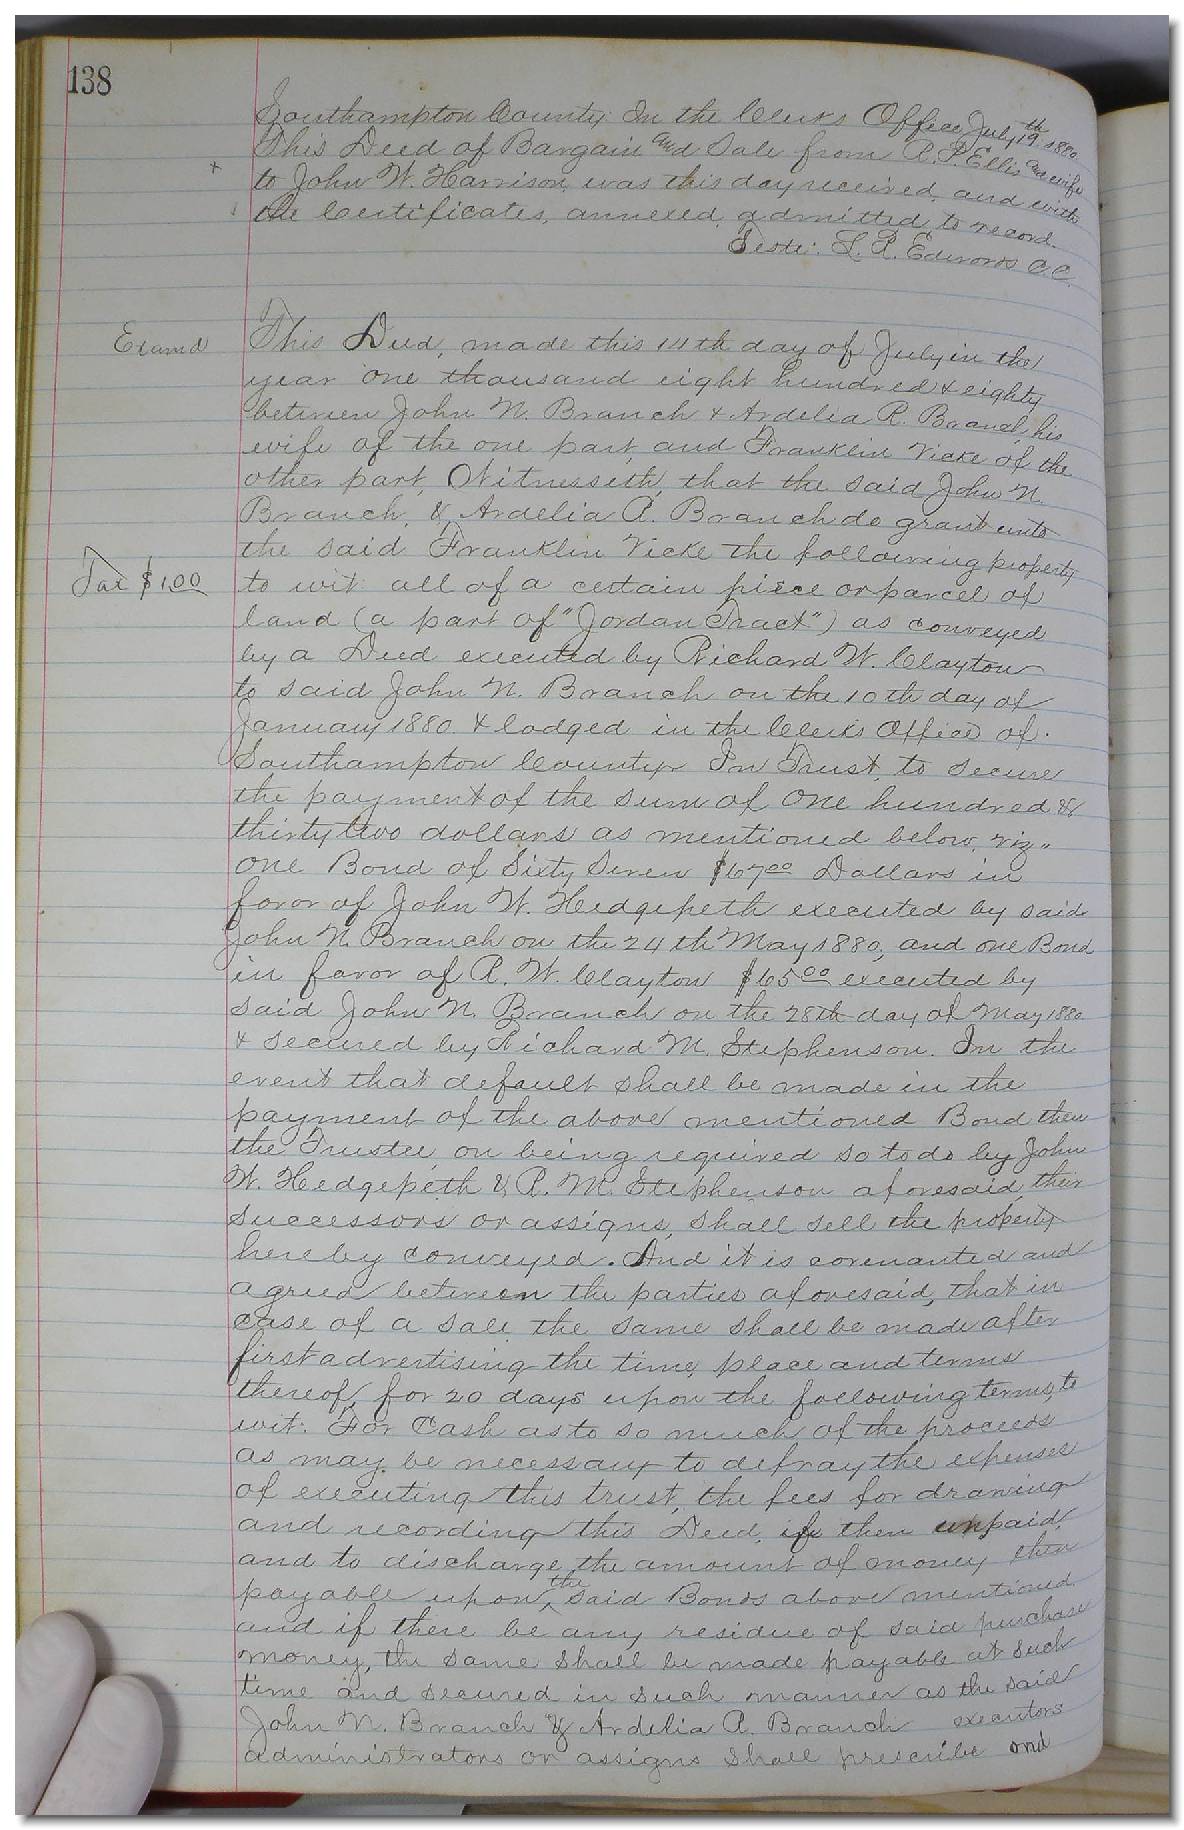 138
Southampton County: In the Clerks Office July 19th 1880
This Deed of Bargain and Sale from R. P. Ellis and wife
to John W. Harrison, was this day received, and with
the Certificates, annexed, admitted to record.
Teste: L. R. Edwards C.C.
Examd
This Deed, made this 14th day of July in the
year one thousand eight hundred & eighty
between John N. Branch & Ardelia R. Branch, his
wife of the one part, and Franklin Vicke of the
other part, Witnesseth, that the said John N.
Branch, & Ardelia R. Branch do grant unto
the said Franklin Vicke the following property
Tax $1.00
to wit: all of a certain piece or parcel of
land (a part of "Jordan Tract") as conveyed
by a Deed executed by Richard W. Clayton
to said John N. Branch on the 10th day of
January 1880 & lodged in the Clerks Office of
Southampton County In Trust, to secure
the payment of the sum of One hundred &
thirty two dollars as mentioned below, viz..
one Bond of Sixty Seven $67.00 Dollars in
favor of John W. Hedgepeth executed by said
John N. Branch on the 24th May 1880, and one Bond
in favor of R. W. Clayton $65.00 executed by
said John N. Branch on the 28th day of May 1880
& secured by Richard M. Stephenson. In the
event that default shall be made in the
payment of the above mentioned Bond then
the Trustee, on being required so to do by John
W. Hedgepeth & R. M. Stephenson aforesaid, their
successors or assigns, shall sell the property
hereby conveyed. And it is covenanted and
agreed between the parties aforesaid, that in
case of a sale, the same shall be made after
first advertising the time, place and terms
thereof, for 20 days upon the following terms, to
wit: For Cash as to so much of the proceeds
as may be necessary to defray the expenses
of executing this trust, the fees for drawing
and recording this Deed, if then unpaid,
and to discharge the amount of money then
payable upon the said Bonds above mentioned
and if there be any residue of said purchase
money, the same shall be made payable at such
time and secured in such manner as the said
John N. Branch & Ardelia R. Branch executors
administrators or assigns shall prescribe and